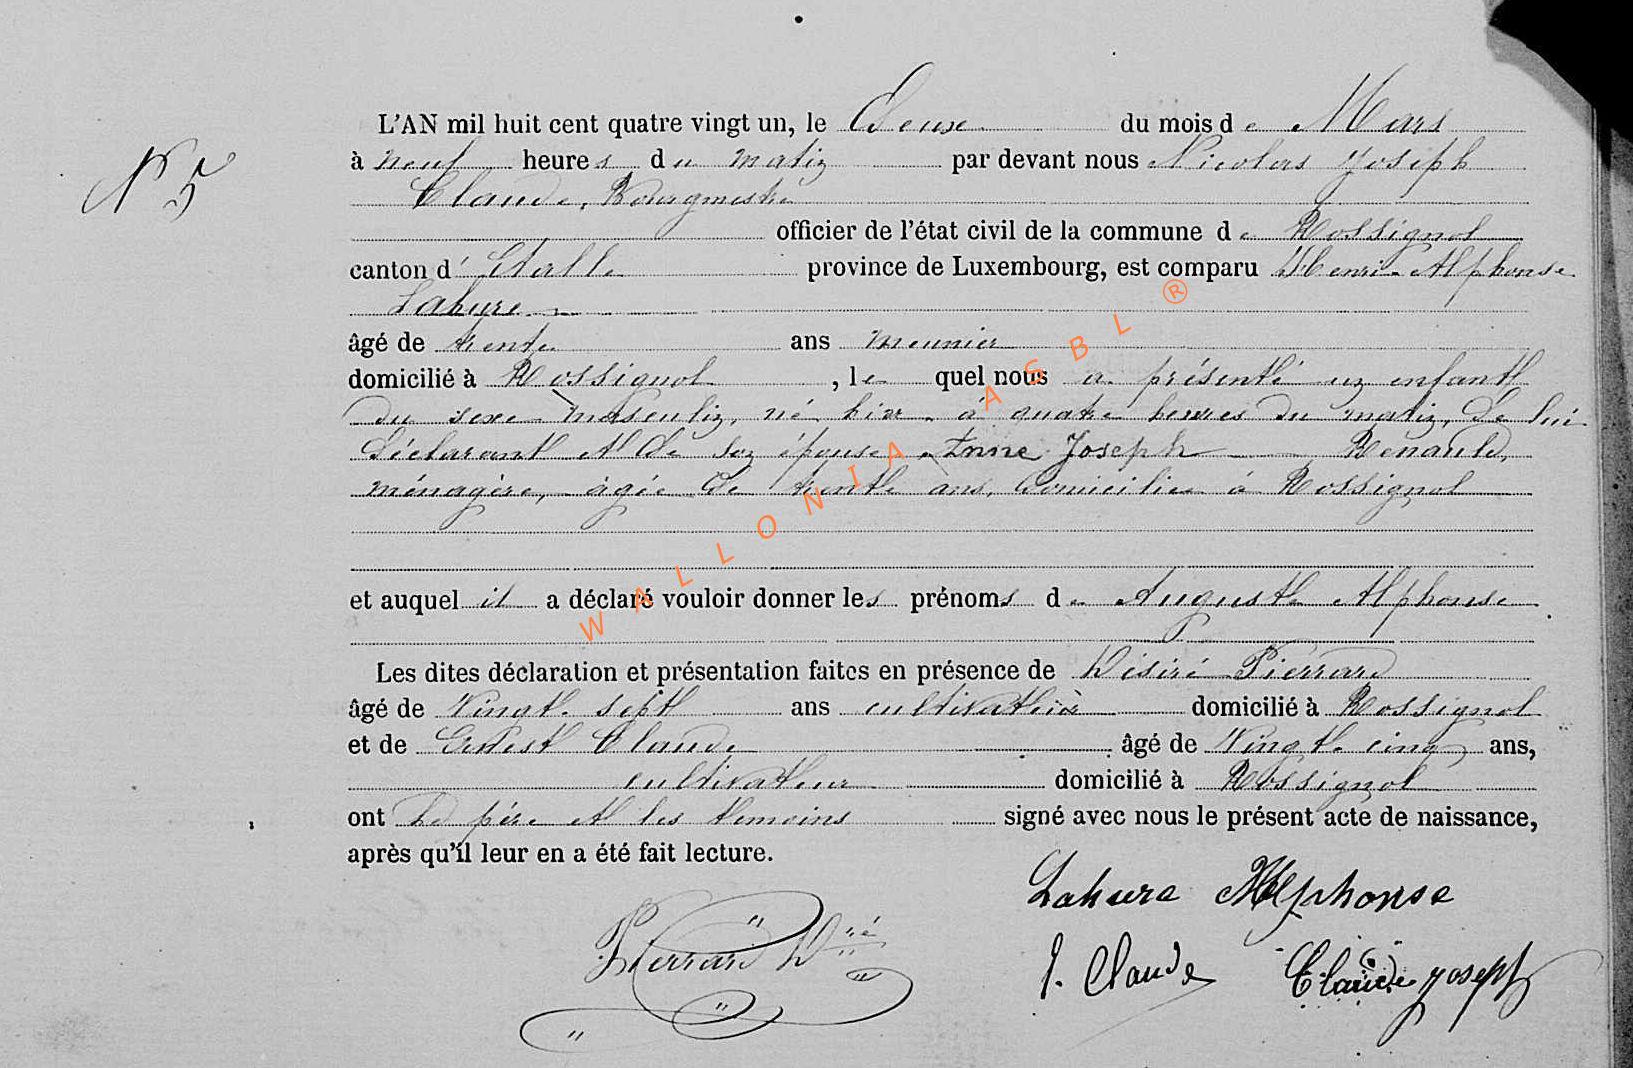 N° 5
L'AN mil huit cent quatre vingt un, le Deux du mois de Mars
à neuf heures du matin par devant nous Nicolas Joseph
Claude, Bourgmestre
officier de l'état civil de la commune de Rossignol
canton d'Etalle province de Luxembourg, est comparu Henri-Alphonse
Lahure
âgé de trente ans meunier
domicilié à Rossignol, lequel nous a présenté un enfant
du sexe masculin, né hier à quatre heures du matin, de lui
déclarant et de son épouse Anne Joseph Renauld,
ménagère, âgée de trente ans, domiciliée à Rossignol
et auquel il a déclaré vouloir donner les prénoms de Auguste Alphonse
Les dites déclaration et présentation faites en présence de Désiré Pierrard
âgé de Vingt-sept ans cultivateur domicilié à Rossignol
et de Ernest Claude âgé de Vingt-cinq ans,
cultivateur domicilié à Rossignol
ont Le père et les témoins signé avec nous le présent acte de naissance,
après qu'il leur en a été fait lecture.
Lahure Alphonse
Pierrard Dré
Claude Claude Joseph
WALLONIA ASBL ®